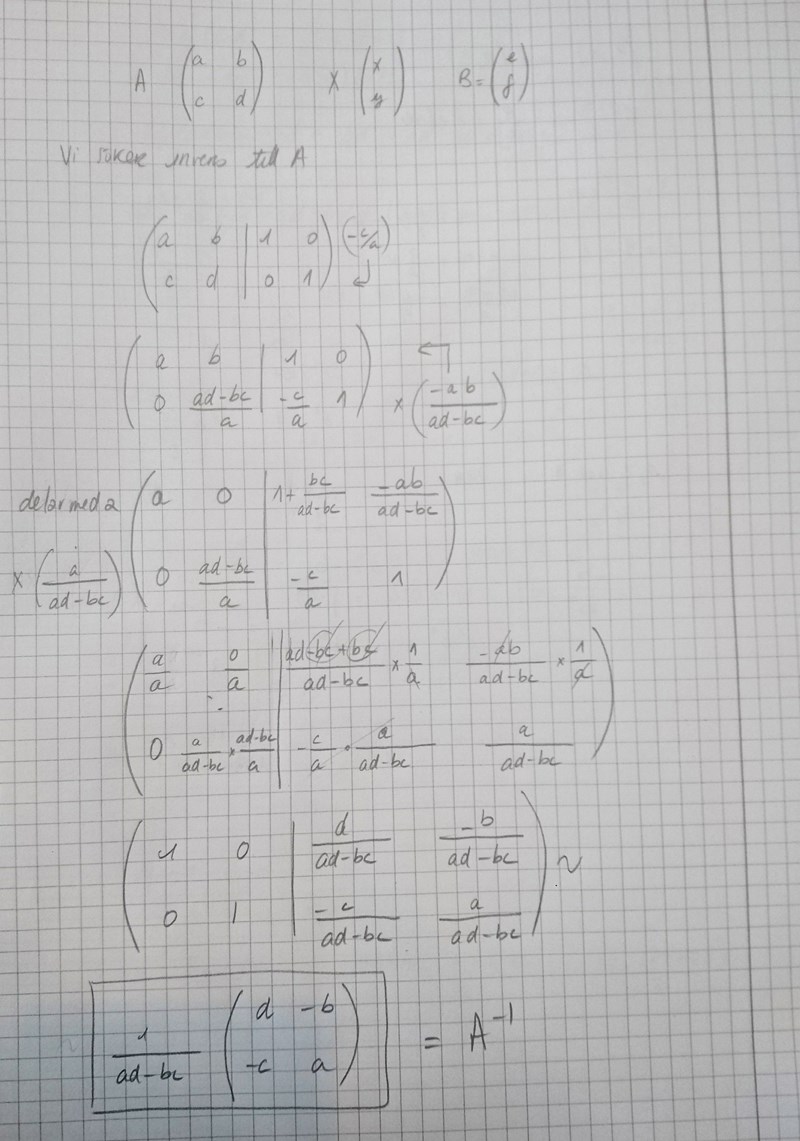 A ( a b ) X ( x ) B = ( e )
( c d ) ( y ) ( f )
Vi söker invers till A
( a b | 1 0 ) (-c/a)
( c d | 0 1 ) ↲
( a b | 1 0 ) ↰
( 0 ad-bc/a | -c/a 1 ) × ( -ab/ad-bc )
delar med a ( a 0 | 1+ bc/ad-bc -ab/ad-bc )
× ( a/ad-bc ) ( 0 ad-bc/a | -c/a 1 )
( a/a 0/a | ad-bc+bc/ad-bc × 1/a -ab/ad-bc × 1/a )
( 0 a/ad-bc × ad-bc/a | -c/a · a/ad-bc a/ad-bc )
( 1 0 | d/ad-bc -b/ad-bc ) ~
( 0 1 | -c/ad-bc a/ad-bc )
1/ad-bc ( d -b ) = A⁻¹
( -c a )